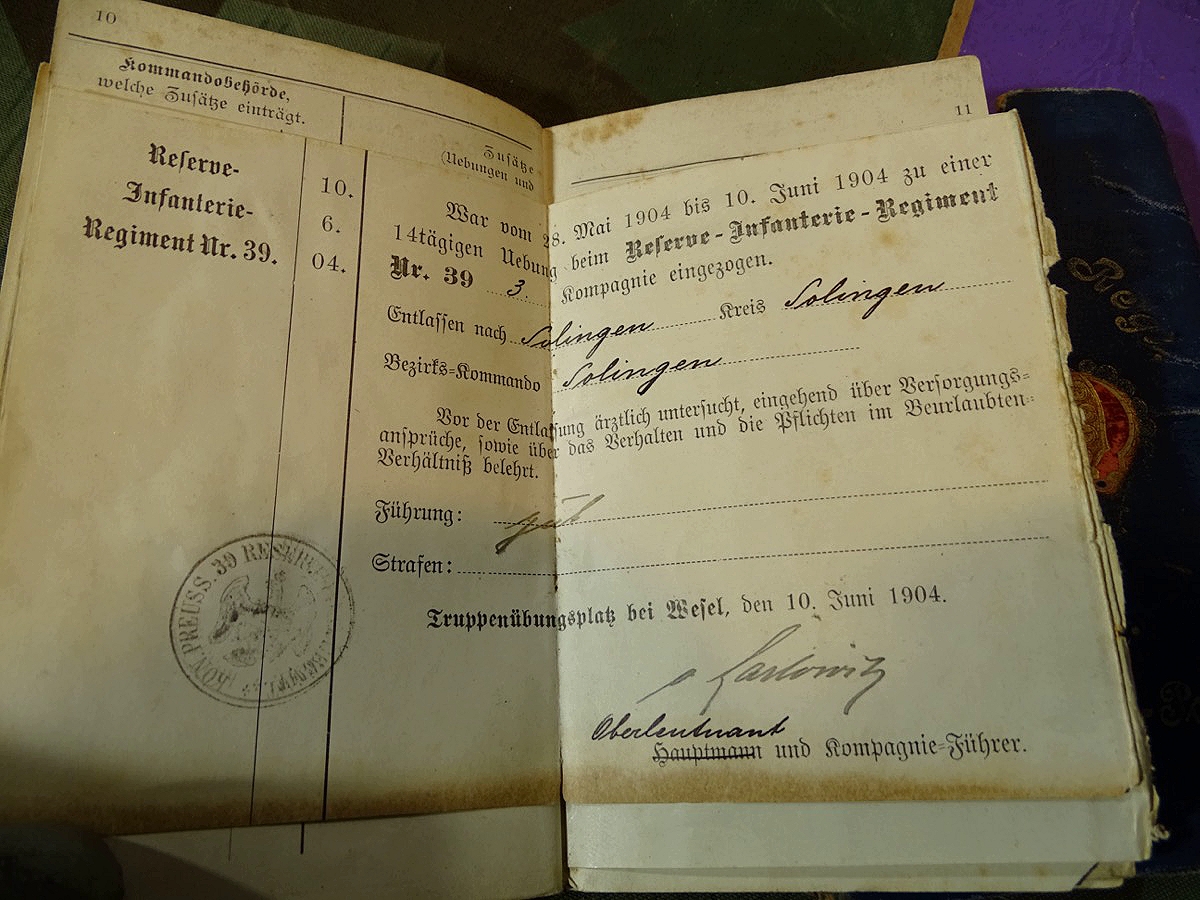 10
Kommandobehörde,
welche Zusätze einträgt.
Zusätze
(Uebungen und
11
Reserve-
Infanterie-
Regiment Nr. 39.
10.
6.
04.
War vom 28. Mai 1904 bis 10. Juni 1904 zu einer
14tägigen Uebung beim Reserve-Infanterie-Regiment
Nr. 39 3. Kompagnie eingezogen.
Entlassen nach Solingen Kreis Solingen
Bezirks-Kommando Solingen
Vor der Entlassung ärztlich untersucht, eingehend über Versorgungs-
ansprüche, sowie über das Verhalten und die Pflichten im Beurlaubten-
Verhältniß belehrt.
Führung: gut
Strafen:
KÖN. PREUSS. 39 RESERVE
Truppenübungsplatz bei Wesel, den 10. Juni 1904.
v Carlowitz
Oberleutnant
Hauptmann und Kompagnie-Führer.